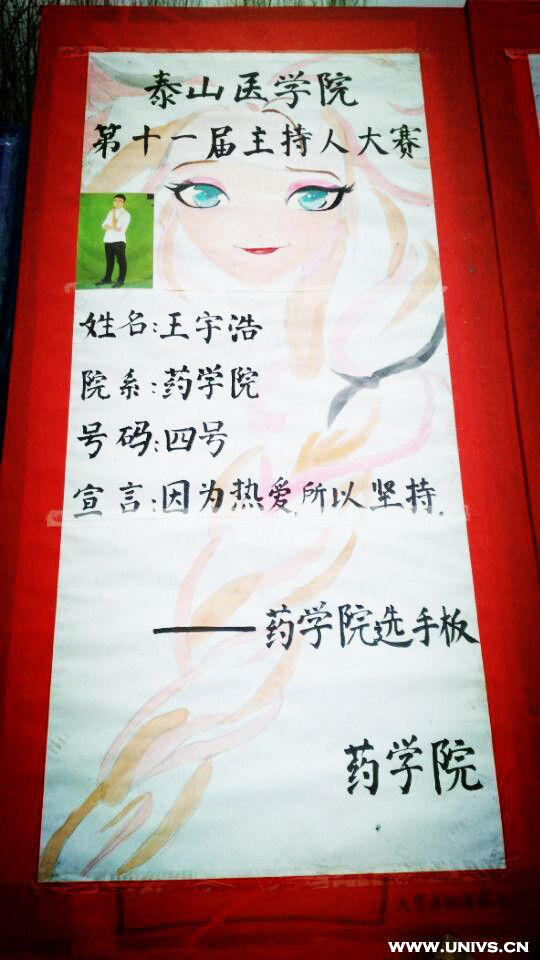 泰山医学院
第十一届主持人大赛
姓名:王宇浩
院系:药学院
号码:四号
宣言:因为热爱,所以坚持.
——药学院选手板
药学院
WWW.UNIVS.CN